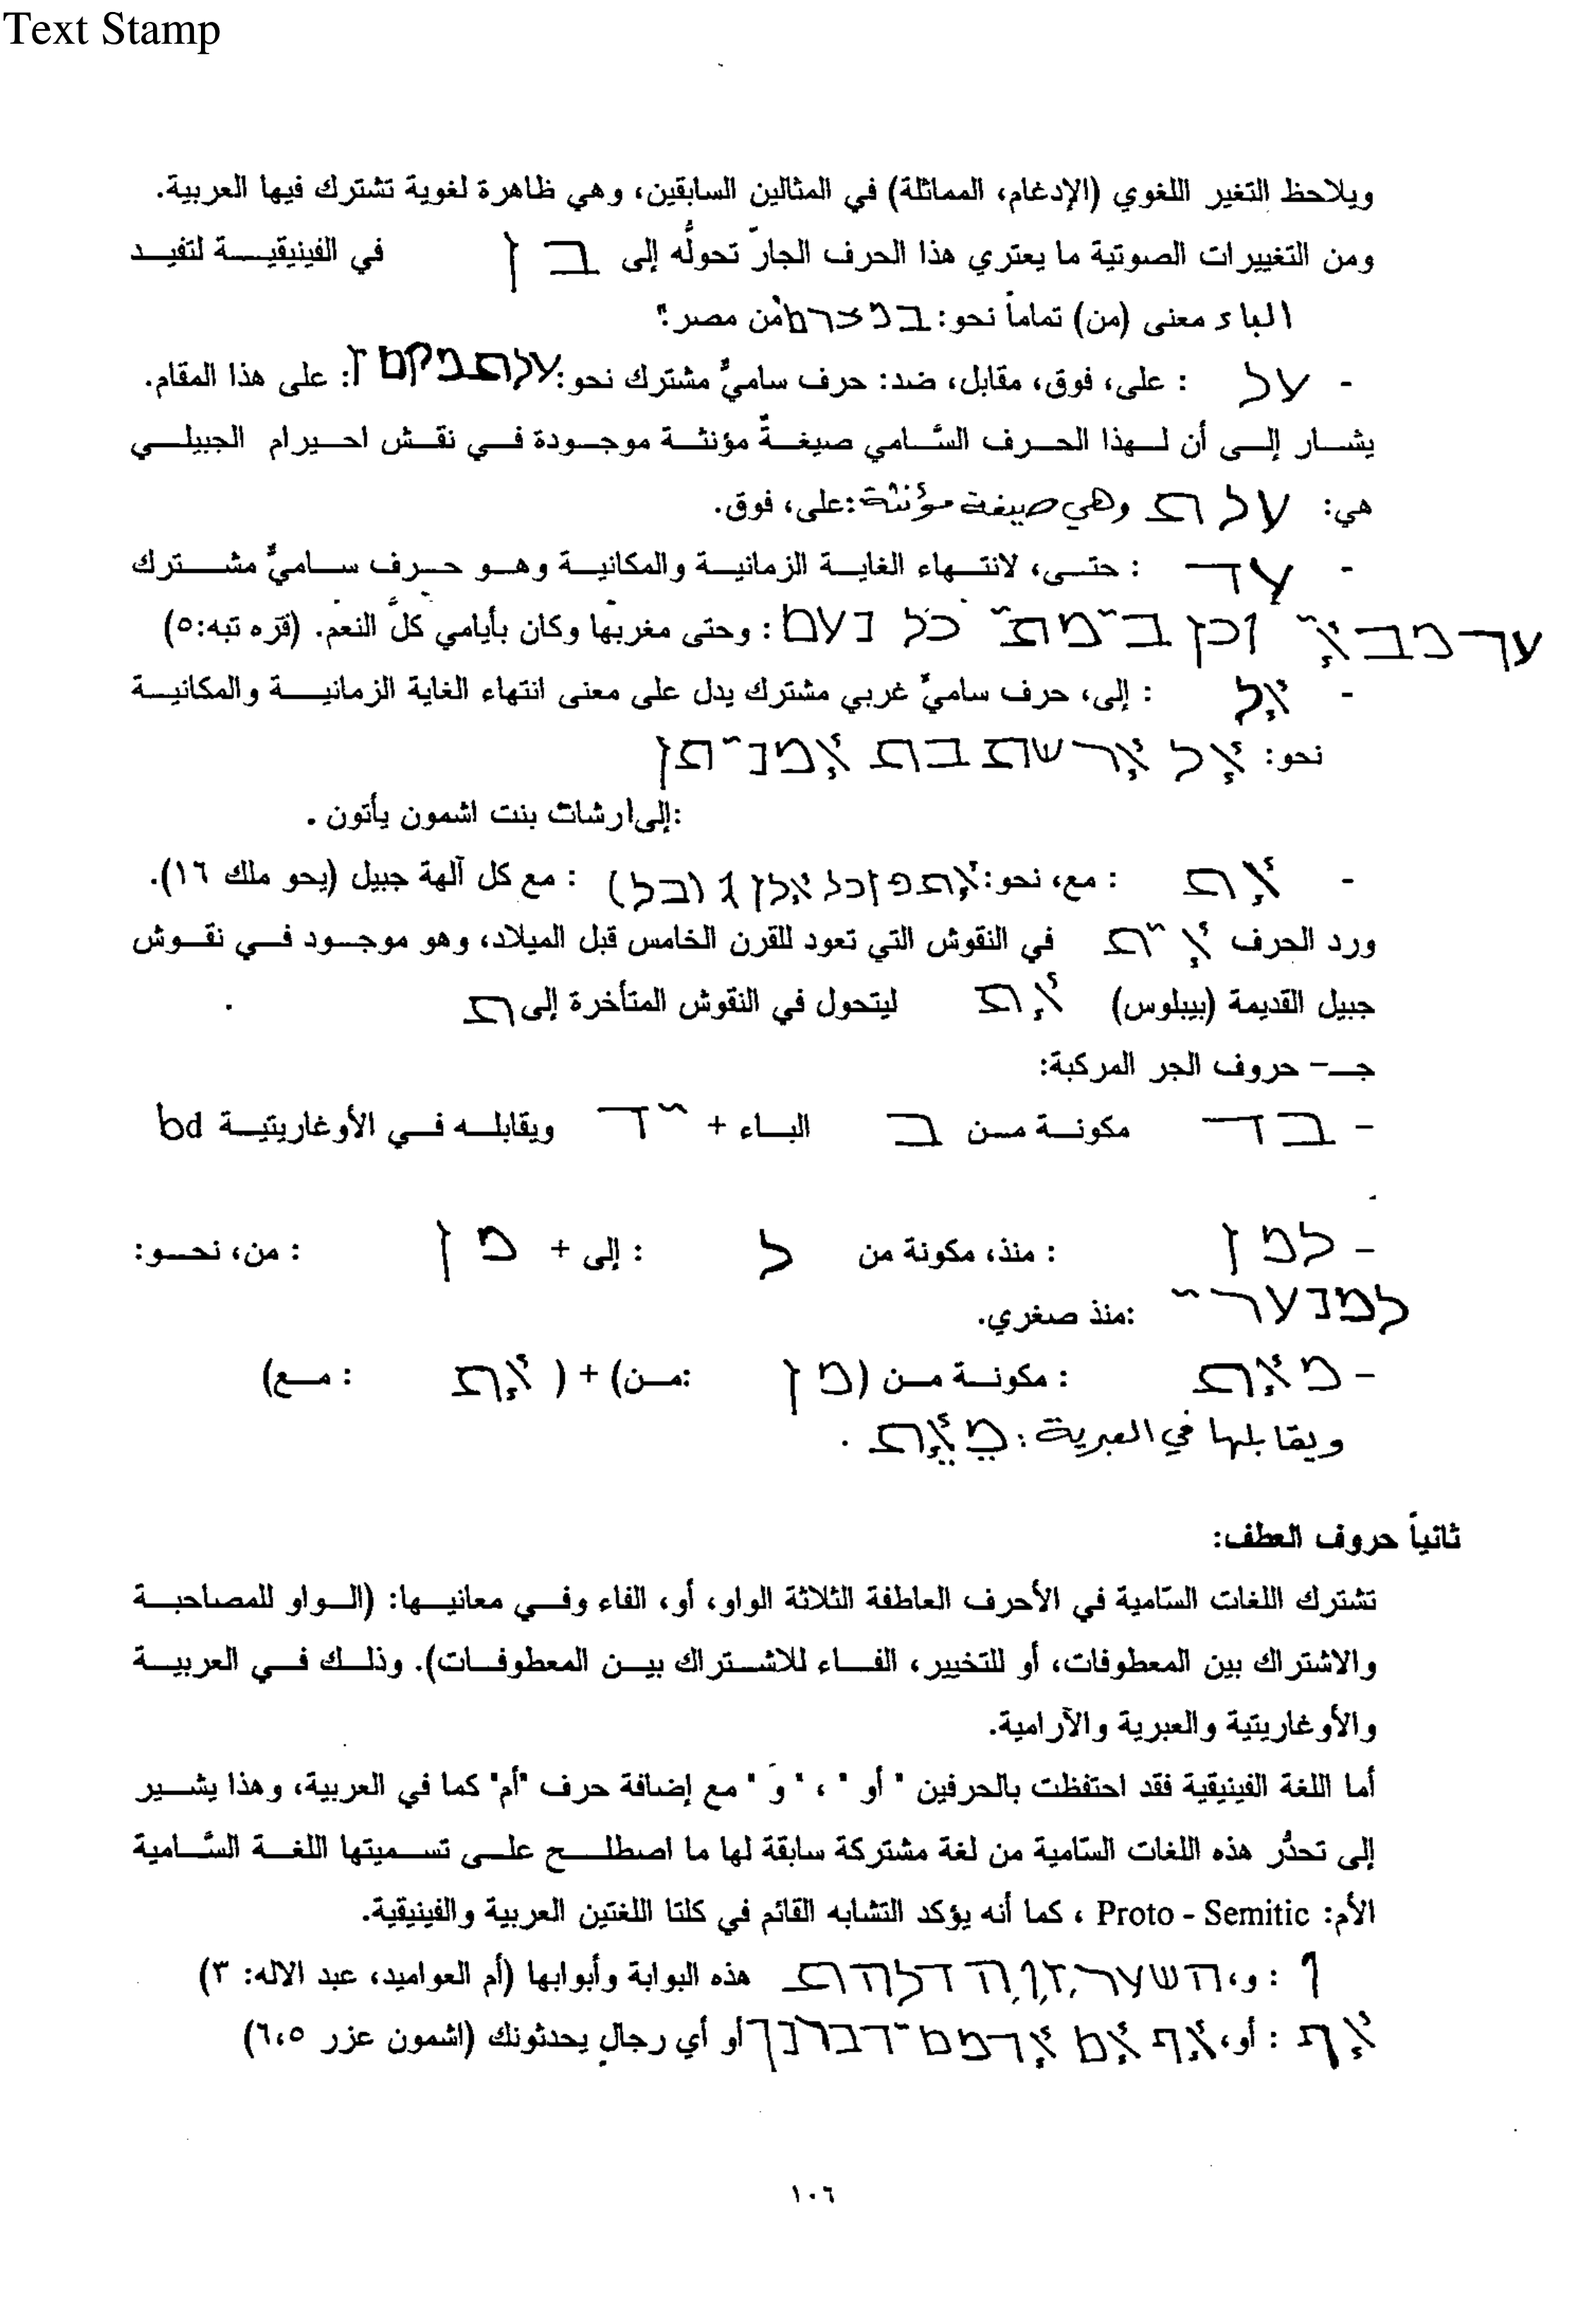 Text Stamp
ويلاحظ التغير اللغوي (الإدغام، المماثلة) في المثالين السابقين، وهي ظاهرة لغوية تشترك فيها العربية.
ومن التغييرات الصوتية ما يعتري هذا الحرف الجارّ تحولُّه إلى ב ן في الفينيقيـــة لتفيـــد
الباء معنى (من) تماماً نحو: במצרם من مصر"
- על : على، فوق، مقابل، ضد: حرف ساميٌّ مشترك نحو: : على هذا المقام.
يشـــار إلـــى أن لـــهذا الحـــرف السَّـامي صيغـــةً مؤنثـــة موجـــودة فـــي نقـــش احـــيرام الجبيلـــي
هي: עלת وهي صيغة مؤنثة: على، فوق.
- עד : حتـــى، لانتـــهاء الغايـــة الزمانيـــة والمكانيـــة وهـــو حـــرف ســـاميٌّ مشـــترك
עד מבא֗י וכן בימתי כל נעם : وحتى مغربها وكان بأيامي كلُّ النعم. (قره تبه:٥)
- אל : إلى، حرف ساميٌّ غربي مشترك يدل على معنى انتهاء الغاية الزمانيـــة والمكانيـــة
نحو: אל ארשת בת אמניתן
:إلى ارشات بنت اشمون يأتون .
- את : مع، نحو: את פן כל אלן ג(בל) : مع كل آلهة جبيل (يحو ملك ١٦).
ورد الحرف אית في النقوش التي تعود للقرن الخامس قبل الميلاد، وهو موجـــود فـــي نقـــوش
جبيل القديمة (بيبلوس) את ليتحول في النقوش المتأخرة إلى ת
جـــ- حروف الجر المركبة:
- בד مكونـــة مـــن ב البـــاء + יד ويقابلـــه فـــي الأوغاريتيـــة bd
- למן : منذ، مكونة من ל : إلى + מן : من، نحـــو:
למנערי :منذ صغري.
- מאת : مكونـــة مـــن (מן :مـــن) + ( את : مـــع)
ويقابلها في العبرية: מאת .
ثانياً حروف العطف:
تشترك اللغات السّامية في الأحرف العاطفة الثلاثة الواو، أو، الفاء وفـــي معانيـــها: (الـــواو للمصاحبـــة
والاشتراك بين المعطوفات، أو للتخيير، الفـــاء للاشـــتراك بيـــن المعطوفـــات). وذلـــك فـــي العربيـــة
والأوغاريتية والعبرية والآرامية.
أما اللغة الفينيقية فقد احتفظت بالحرفين " أو " ، " وَ " مع إضافة حرف "أم" كما في العربية، وهذا يشـــير
إلى تحدُّر هذه اللغات السّامية من لغة مشتركة سابقة لها ما اصطلـــح علـــى تســـميتها اللغـــة السَّـامية
الأم: Proto - Semitic ، كما أنه يؤكد التشابه القائم في كلتا اللغتين العربية والفينيقية.
ו : و، השער ז ו ה דלהת هذه البوابة وأبوابها (أم العواميد، عبد الاله: ٣)
אף : أو، אף אם אדמם ידברנך أو أي رجالٍ يحدثونك (اشمون عزر ٦،٥)
١٠٦